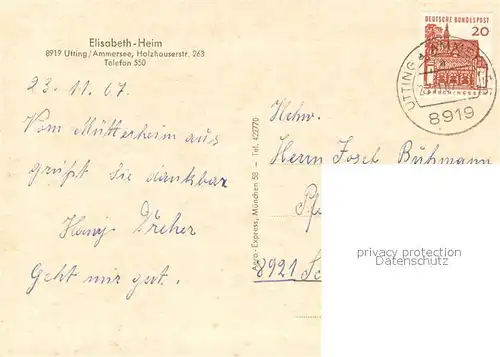 Elisabeth-Heim
8919 Utting/Ammersee, Holzhauserstr. 263
Telefon 550
23. 11. 67.
Vom Mütterheim aus
grüßt Sie dankbar
Dreher
Geht mir gut.
Aero-Express, München 58 – Tel. 422770
DEUTSCHE BUNDESPOST
20
UTTING
8919
Hchw.
Herrn Josef Buhmann
8921
privacy protection
Datenschutz